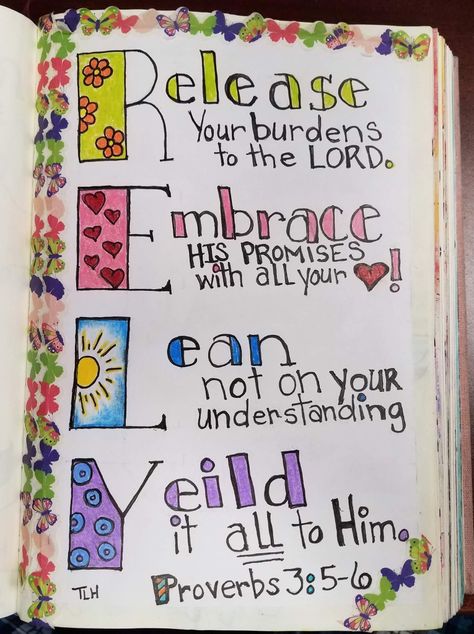 Release
Your burdens
to the LORD.
Embrace
HIS PROMISES
with all your ❤!
Lean
not on YOUR
understanding
Yeild
it all to Him.
Proverbs 3:5-6
TLH